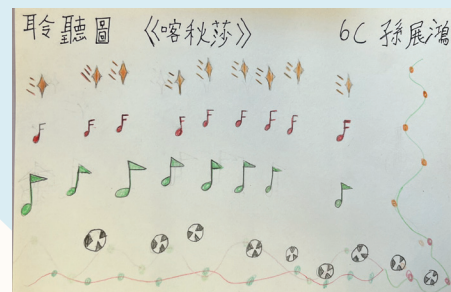 聆聽圖 《喀秋莎》 6C 孫展鴻